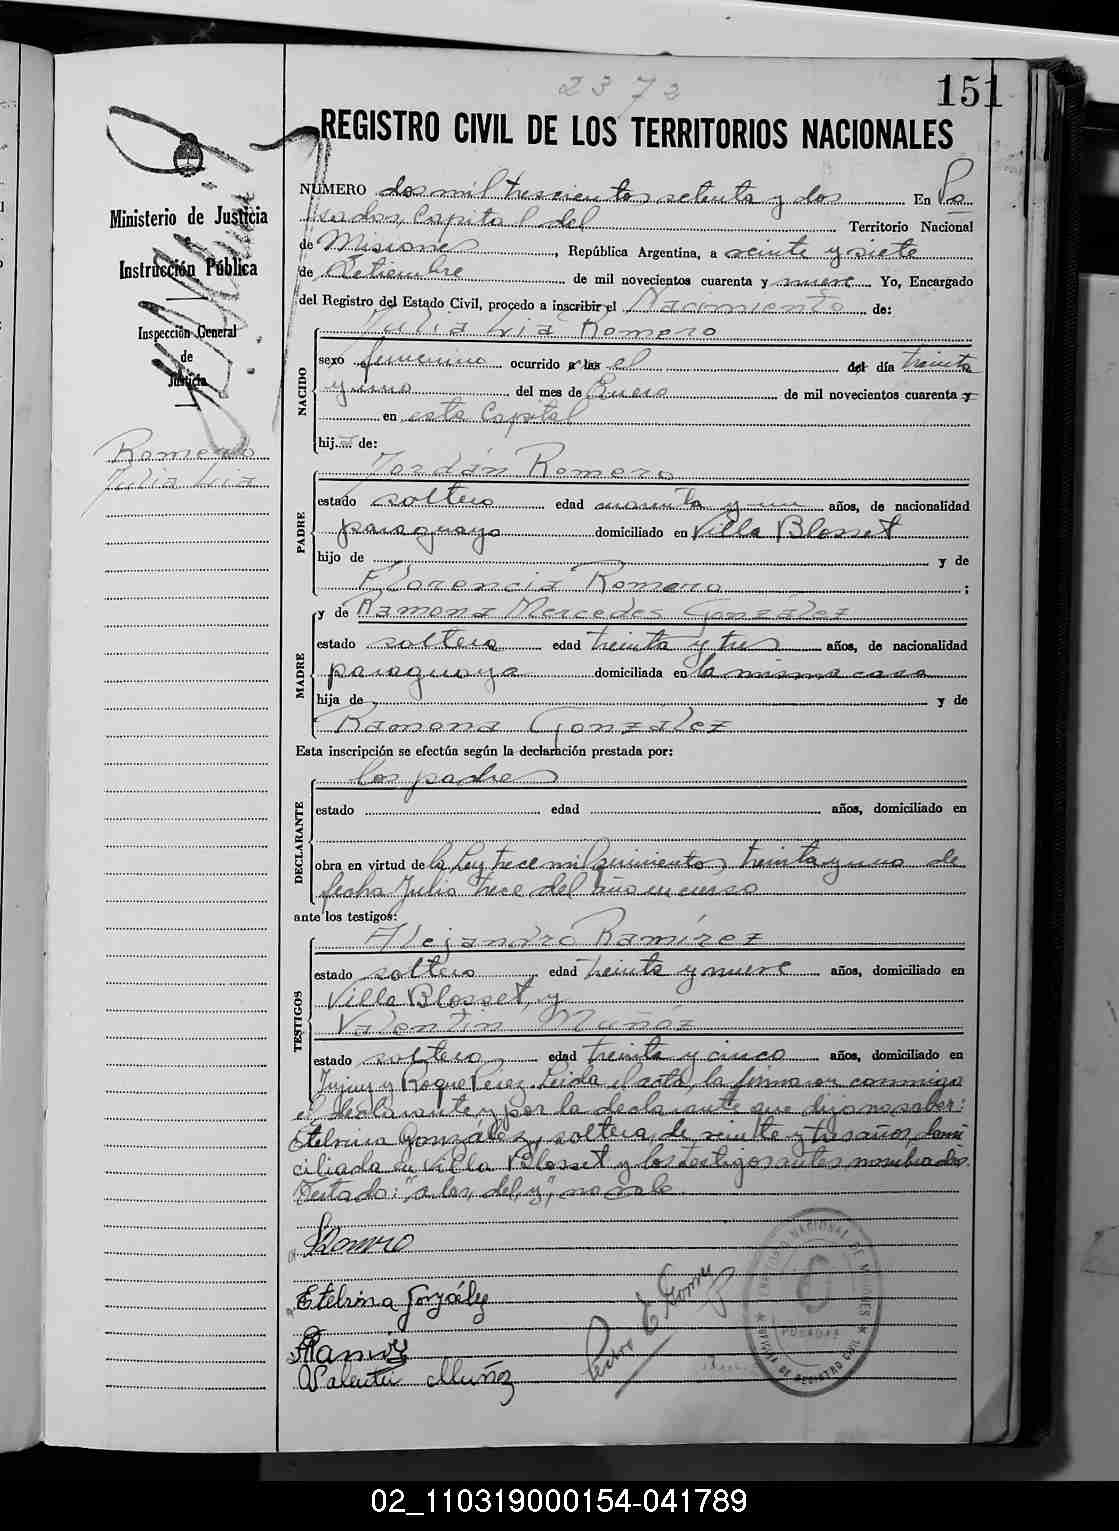 2372
151
REGISTRO CIVIL DE LOS TERRITORIOS NACIONALES
Ministerio de Justicia
e
Instrucción Pública
Inspección General
de
Justicia
Romero
Julia Lia
NUMERO dos mil trescientos setenta y dos En Po
sadas, Capital del Territorio Nacional
de Misiones, República Argentina, a veinte y siete
de Setiembre de mil novecientos cuarenta y nueve Yo, Encargado
del Registro del Estado Civil, procedo a inscribir el Nacimiento de:
NACIDO
Julia Lia Romero
sexo femenino ocurrido a las el del día treinta
y uno del mes de Enero de mil novecientos cuarenta y
en esta Capital
hij de:
PADRE
Jordán Romero
estado soltero edad cuarenta y un años, de nacionalidad
paraguayo domiciliado en Villa Blosset
hijo de y de
Florencia Romero ;
MADRE
y de Ramona Mercedes González
estado soltera edad treinta y tres años, de nacionalidad
paraguaya domiciliada en la misma casa
hija de y de
Ramona González
Esta inscripción se efectúa según la declaración prestada por:
DECLARANTE
los padres
estado edad años, domiciliado en
obra en virtud de la Ley trece mil quinientos treinta y uno de
fecha Julio trece del año en curso
ante los testigos:
TESTIGOS
Alejandro Ramírez
estado soltero edad treinta y nueve años, domiciliado en
Villa Blosset, y
Valentín Muñóz
estado soltero, edad treinta y cinco años, domiciliado en
Jujuy y Roque Perez. Leida el acta, la firmaron conmigo
el declarante y por la declarante que dijo no saber:
Etelvina González, soltera, de veinte y tres años, domi
ciliada en Villa Blosset y los testigos antes nombrados.
Testado: "a las, del, y", no vale.
Romero
Etelvina González
Ramirez
Valentin Muñoz
Pedro E Gomez
POSADAS
OFICINA DE REGISTRO CIVIL
02_110319000154-041789